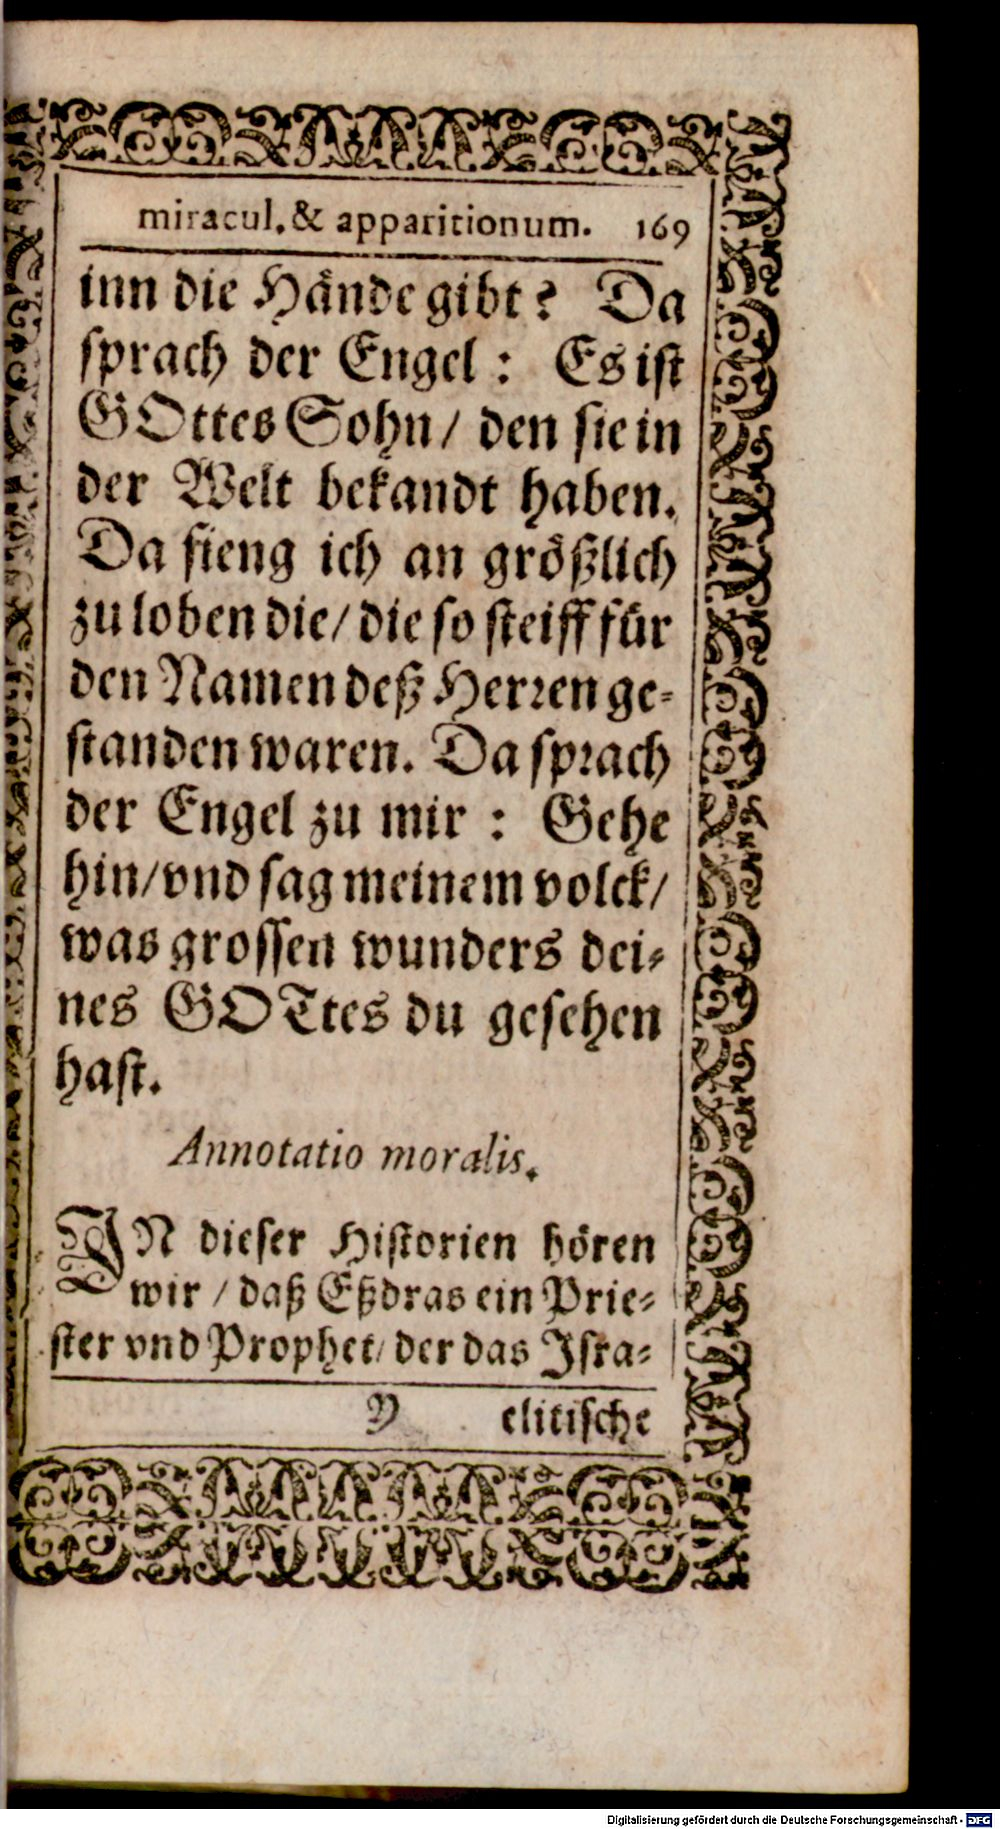 miracul. & apparitionum. 169
inn die Hände gibt? Da
sprach der Engel: Es ist
GOttes Sohn/ den sie in
der Welt bekandt haben.
Da fieng ich an größlich
zu loben die/ die so steiff für
den Namen deß Herren ge-
standen waren. Da sprach
der Engel zu mir: Gehe
hin/ vnd sag meinem volck/
was grossen wunders dei-
nes GOTtes du gesehen
hast.
Annotatio moralis.
IN dieser Historien hören
wir/ daß Eßdras ein Prie-
ster vnd Prophet/ der das Isra-
Y elitische
Digitalisierung gefördert durch die Deutsche Forschungsgemeinschaft - DFG